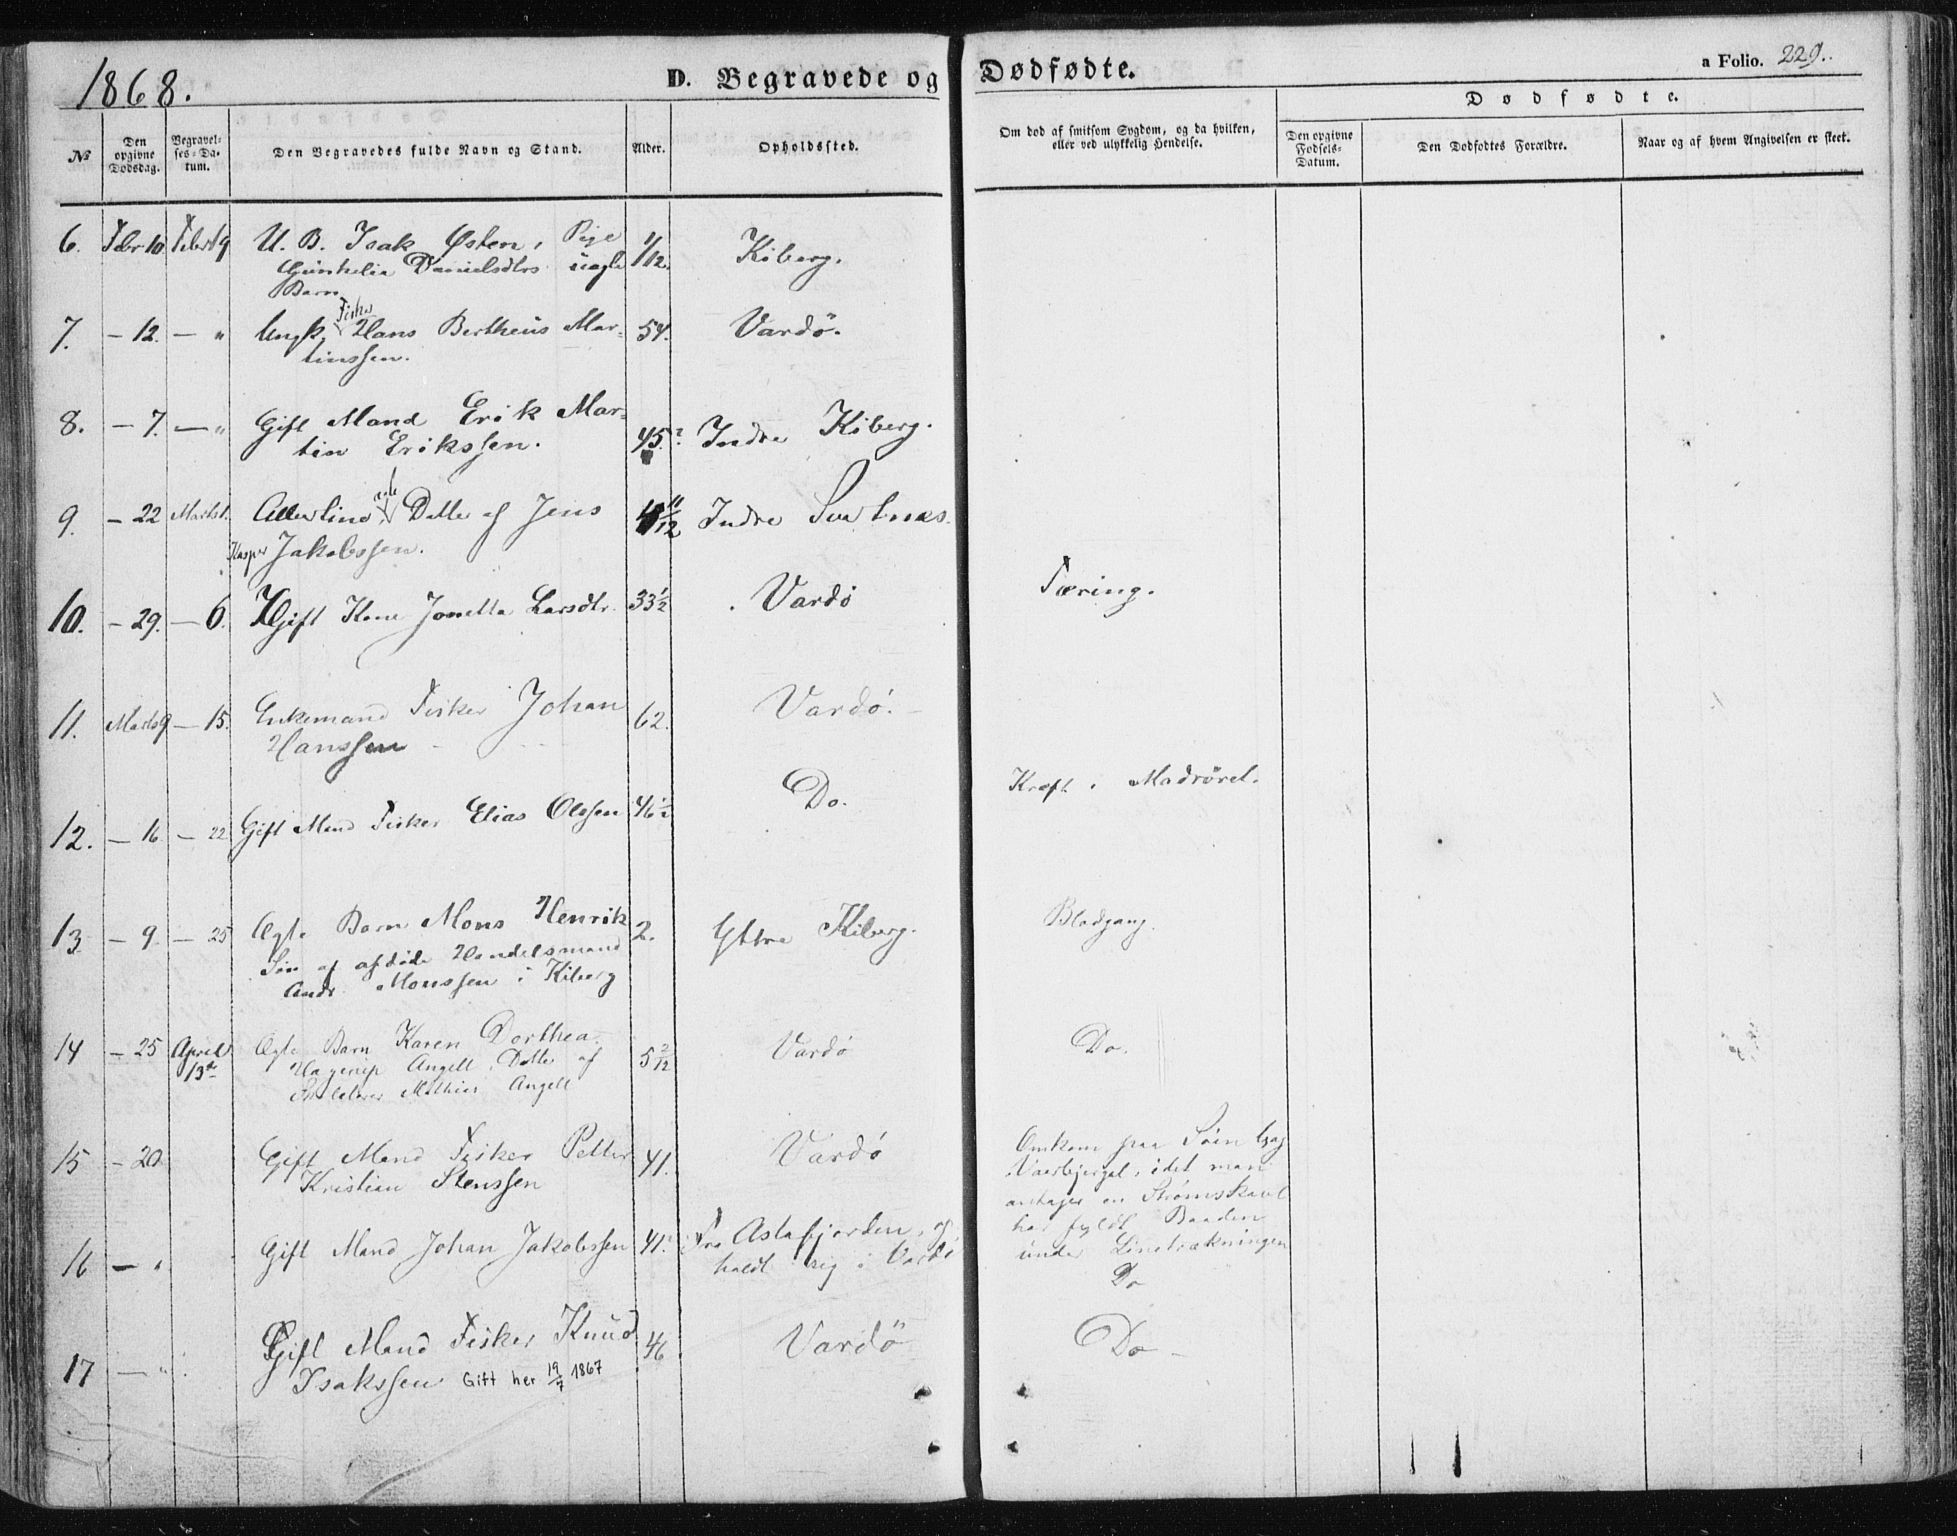 1868.
D. Begravede og Dødfødte.
a Folio. 229.
Dødfødte.
No
Den opgivne Dødsdag.
Begravelses-Datum.
Den Begravedes fulde Navn og Stand.
Alder.
Opholdssted.
Om død af smitsom Sygdom, og da hvilken, eller ved ulykkelig Hendelse.
Den opgivne Fødsels-Datum.
Den Dødfødtes Forældre.
Naar og af hvem Angivelsen er skeet.
6. Febr 10 Febr 19 U. B. Isak Østen, Pige 1/12 Kiberg.
Danielsdtrs uægte
Barn
7. - 12. - " Ungk. Fisker Hans Bertheus Mar- 54. Vardö.
tinssen.
8. - 7. - " Gift Mand Erik Mar- 45? Indre Kiberg.
tin Erikssen.
9. - 22 Marts 1. ægte Datter af Jens 11/12 Indre Svartnæs.
Kasper Jakobssen.
10. - 29. - 6. Gift Kone Jonetta Larsdtr. 33½ Vardö Tæring.
11. Marts 9 - 15. Enkemand Fisker Johan 62. Vardö.
Hanssen
12. - 16 - 22 Gift Mand Fisker Elias Olssen 46½ Do. Kræft i Madröret.
13 - 9. - 25 Ægte Barn Mons Henrik 2. Yttre Kiberg. Blodgang.
Sön af afdöde Handelsmand
Andr. Monssen i Kiberg
14 - 25 April 13de Ægte Barn Karen Dorthea 5 2/12 Vardö Do.
Hagerup Angell, Datter af
Mathias Angell
15 - 20 Gift Mand Fisker Petter 41. Vardö Omkom paa Söen
Kristian Stenssen
idet man
antager en Strömskavl
har fyldt Baaden
under Linetrækningen
16 - " Gift Mand Johan Jakobssen 41. Fra Astafjorden, op- Do
holdt sig i Vardö
17 - " Gift Mand Fisker Knud 46 Vardö Do
Isakssen Gift her 19/7 1867